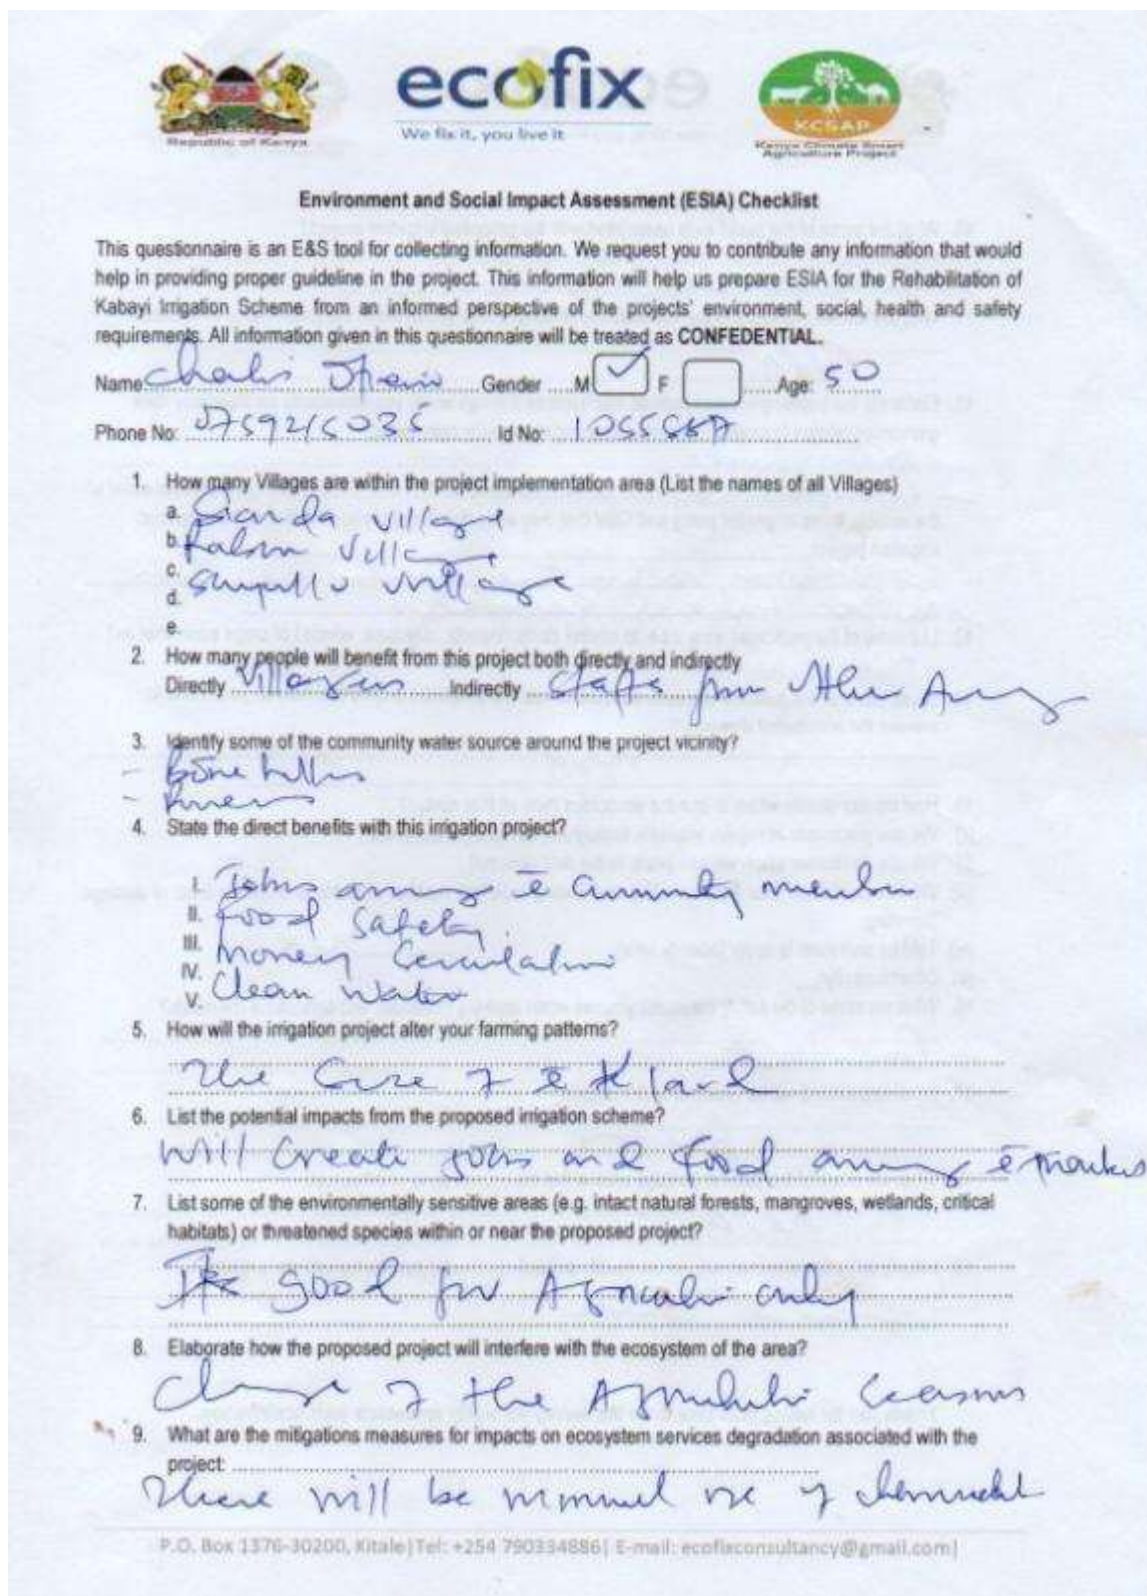 Republic of Kenya
ecofix
We fix it, you live it
KCSAP
Kenya Climate Smart
Agriculture Project
Environment and Social Impact Assessment (ESIA) Checklist
This questionnaire is an E&S tool for collecting information. We request you to contribute any information that would
help in providing proper guideline in the project. This information will help us prepare ESIA for the Rehabilitation of
Kabayi Irrigation Scheme from an informed perspective of the projects' environment, social, health and safety
requirements. All information given in this questionnaire will be treated as CONFEDENTIAL.
Name Gender M F Age: 50
Phone No: Id No:
1. How many Villages are within the project implementation area (List the names of all Villages)
a. Sianda village
b. village
c. village
d.
e.
2. How many people will benefit from this project both directly and indirectly
Directly Villagers Indirectly from other
3. Identify some of the community water source around the project vicinity?
- Bore
-
4. State the direct benefits with this irrigation project?
I. Jobs among ē community
II. food safety.
III. money
IV. Clean water
V.
5. How will the irrigation project alter your farming patterns?
The
6. List the potential impacts from the proposed irrigation scheme?
will create jobs and food among ē
7. List some of the environmentally sensitive areas (e.g. intact natural forests, mangroves, wetlands, critical
habitats) or threatened species within or near the proposed project?
good for only
8. Elaborate how the proposed project will interfere with the ecosystem of the area?
of the
9. What are the mitigations measures for impacts on ecosystem services degradation associated with the
project:
There will be use of
P.O. Box 1376-30200, Kitale|Tel: +254 790334886| E-mail: ecofixconsultancy@gmail.com|